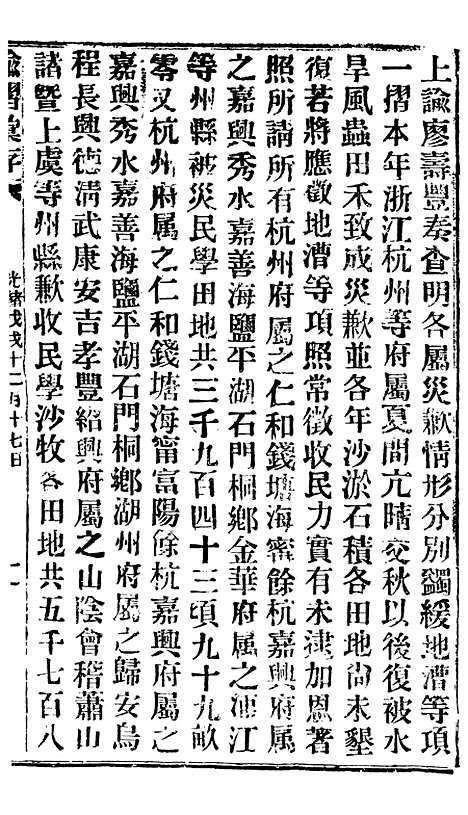 上諭廖壽豐奏查明各屬災歉情形分別蠲緩地漕等項
一摺本年浙江杭州等府屬夏間亢晴交秋以後復被水
旱風蟲田禾致成災歉並各年沙淤石積各田地尚未墾
復若將應徵地漕等項照常徵收民力實有未逮加恩著
照所請所有杭州府屬之仁和錢塘海甯餘杭嘉興府屬
之嘉興秀水嘉善海鹽平湖石門桐鄉金華府屬之浦江
等州縣被災民學田地共三千九百四十三頃九十九畝
零又杭州府屬之仁和錢塘海甯富陽餘杭嘉興府屬之
嘉興秀水嘉善海鹽平湖石門桐鄉湖州府屬之歸安烏
程長興德清武康安吉孝豐紹興府屬之山陰會稽蕭山
諸暨上虞等州縣歉收民學沙牧各田地共五千七百八
諭摺彙存 光緒戊戌十二月十七日